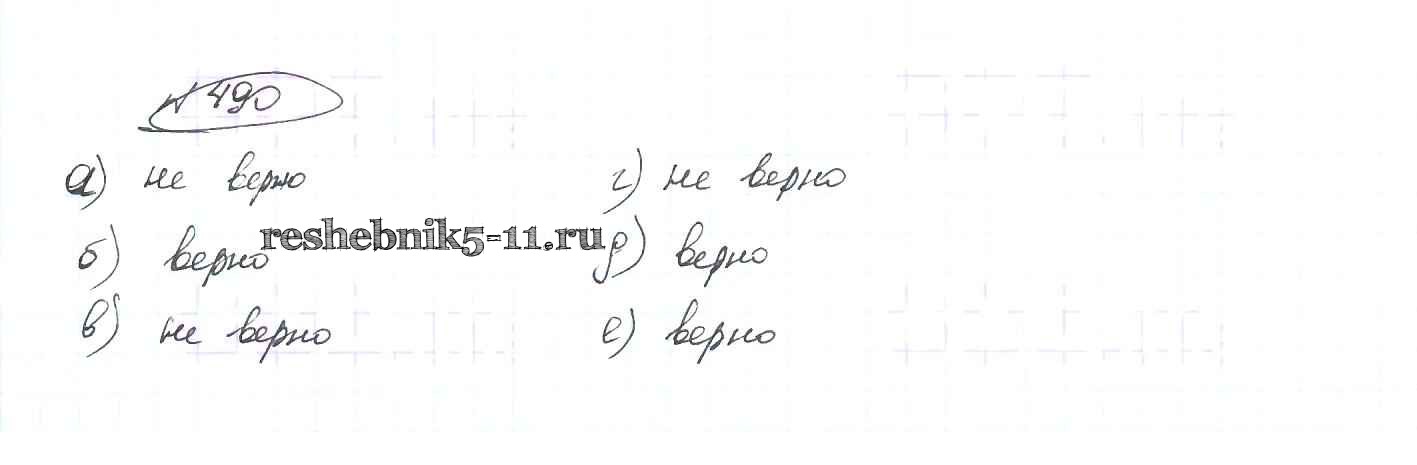 № 490
а) не верно г) не верно
reshebnik5-11.ru
б) верно д) верно
в) не верно е) верно